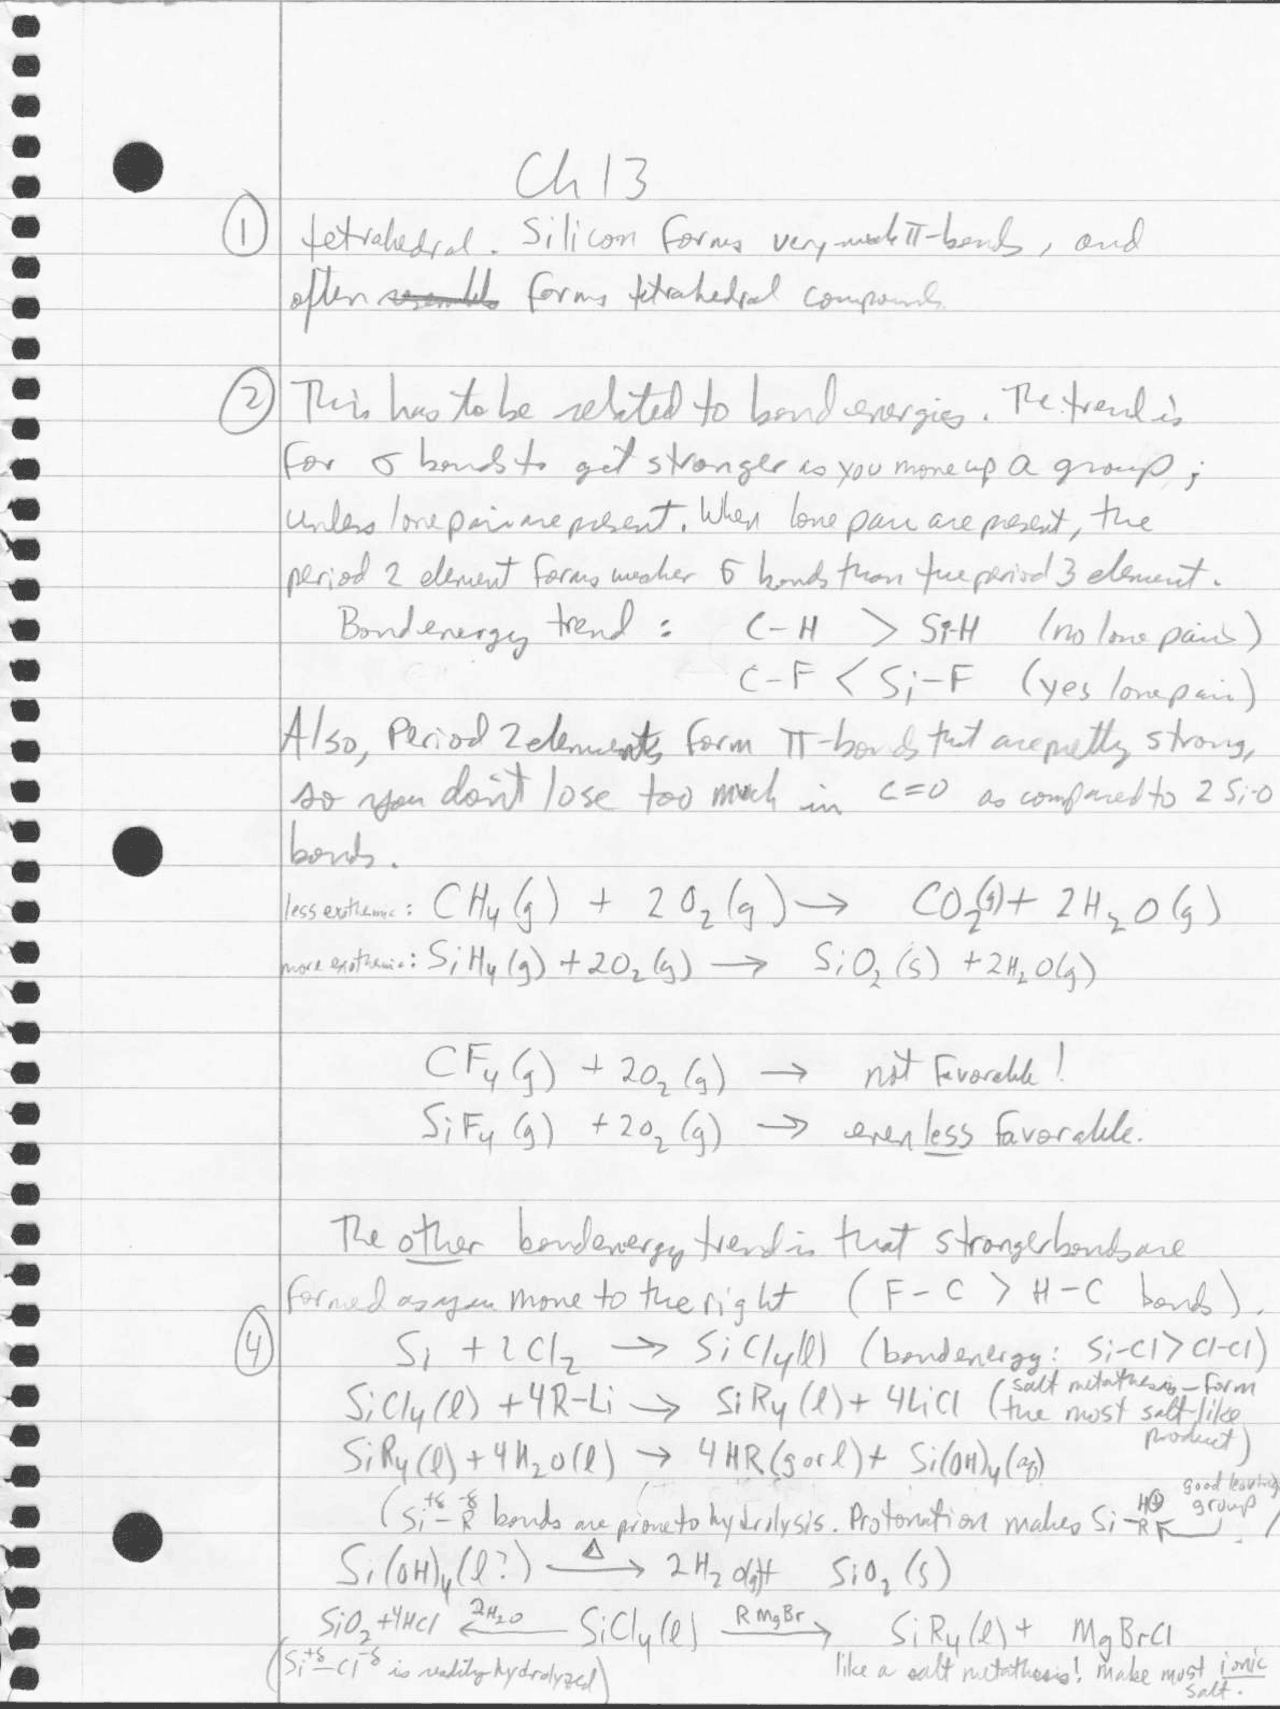 Ch 13
① tetrahedral. Silicon forms very weak π-bonds, and
often forms tetrahedral compounds.
② This has to be related to bond energies. The trend is
for σ bonds to get stronger as you move up a group;
unless lone pairs are present. When lone pairs are present, the
period 2 element forms weaker σ bonds than the period 3 element.
Bond energy trend : C-H > Si-H (no lone pairs)
C-F < Si-F (yes lone pairs)
Also, Period 2 elements form π-bonds that are pretty strong,
so you don't lose too much in C=O as compared to 2 Si-O
bonds.
less exothermic: CH₄(g) + 2O₂(g) → CO₂(g) + 2H₂O(g)
more exothermic: SiH₄(g) + 2O₂(g) → SiO₂(s) + 2H₂O(g)
CF₄(g) + 2O₂(g) → not favorable!
SiF₄(g) + 2O₂(g) → even less favorable.
The other bond energy trend is that stronger bonds are
formed as you move to the right (F-C > H-C bonds).
④ Si + 2Cl₂ → SiCl₄(l) (bond energy: Si-Cl > Cl-Cl)
SiCl₄(l) + 4R-Li → SiR₄(l) + 4LiCl (salt metathesis - form
the most salt-like
product)
SiR₄(l) + 4H₂O(l) → 4HR(g or l) + Si(OH)₄(aq)
(Si^+δ - R^-δ bonds are prone to hydrolysis. Protonation makes Si-R H⊕ good leaving group)
Si(OH)₄(l?) —Δ→ 2H₂O(g) + SiO₂(s)
SiO₂ + 4HCl ←2H₂O— SiCl₄(l) —RMgBr→ SiR₄(l) + MgBrCl
(Si^+δ - Cl^-δ is readily hydrolyzed) like a salt metathesis! Make most ionic
salt.